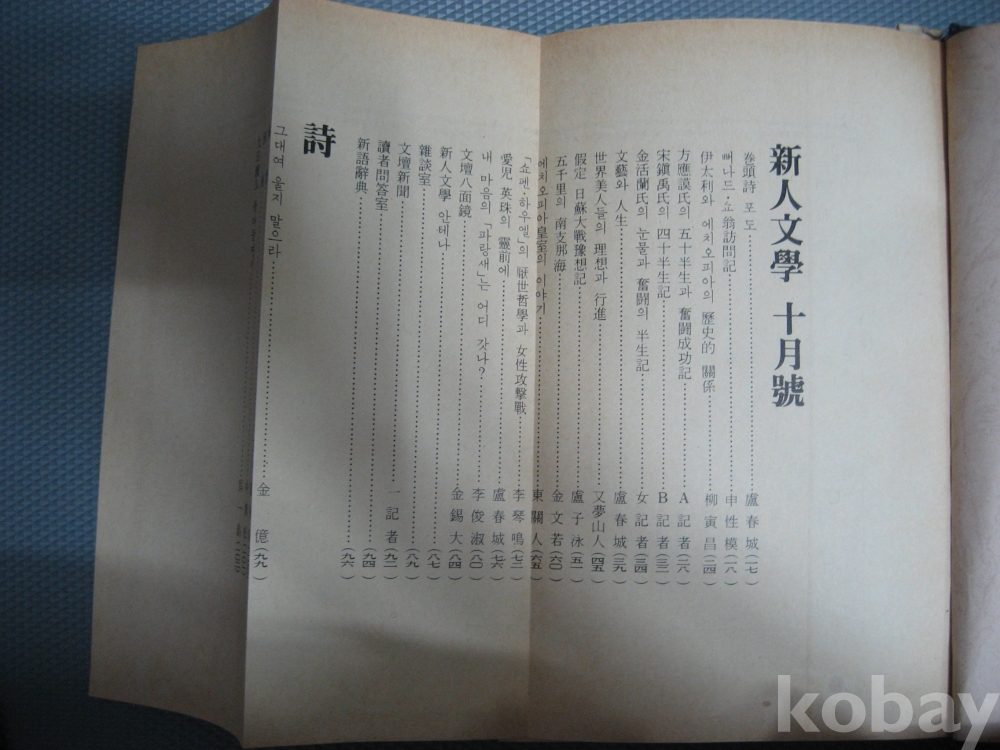 新人文學 十月號
卷頭詩 포도 盧春城(一七)
뻐나드·쇼翁訪問記 申性模(一八)
伊太利와 에치오피아의 歷史的 關係 柳寅昌(二四)
方應謨氏의 五十半生과 奮鬪成功記 A記者(二八)
宋鎭禹氏의 四十半生記 B記者(三二)
金活蘭氏의 눈물과 奮鬪의 半生記 女記者(三四)
文藝와 人生 盧春城(三九)
世界美人들의 理想과 行進 又夢山人(四五)
假定 日蘇大戰豫想記 盧子泳(五一)
五千里의 南支那海 金文若(六〇)
에치오피아皇室의 이야기 東關人(六五)
「쇼펜하우엘」의 厭世哲學과 女性攻擊戰 李琴鳴(七二)
愛兒 英珠의 靈前에 盧春城(七六)
내 마음의 「파랑새」는 어디 갓나? 李俊淑(八〇)
文壇八面鏡 金錫大(八四)
新人文學 안테나 (八七)
雜談室 (八九)
文壇新聞 一記者(九二)
讀者問答室 (九四)
新語辭典 (九六)
詩
그대여 울지 말으라 金億(九九)
kobay